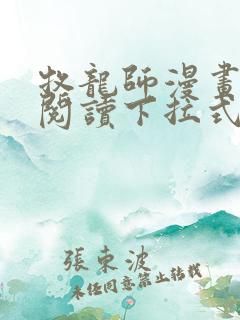 牧龍師漫畫
閱讀下拉式
張東波
未經同意禁止轉載